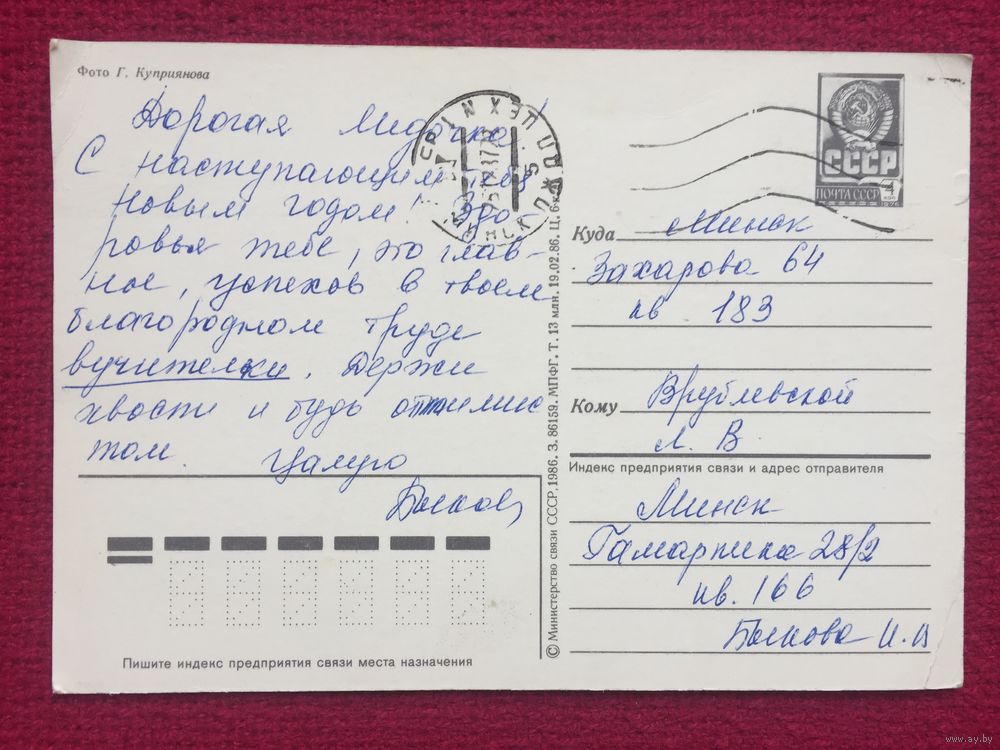 Фото Г. Куприянова
Дорогая Лидочка!
С наступающим тебя
Новым годом! Здо
ровья тебе, это глав-
ное, успехов в твоем
благородном труде
вучителки. Держи
хвост и будь оптимис
том. Цалую
Быкова
Пишите индекс предприятия связи места назначения
© Министерство связи СССР, 1986. З. 86159. МПФГ. Т. 13 млн. 19.02.86. Ц. 6 к.
СССР
ПОЧТА СССР
4
коп
1976
Куда Минск
Захарова 64
кв 183
Кому Врублевской
Л. В.
Индекс предприятия связи и адрес отправителя
Минск
Гамарника 28/2
кв. 166
Быкова И. М
www.ay.by